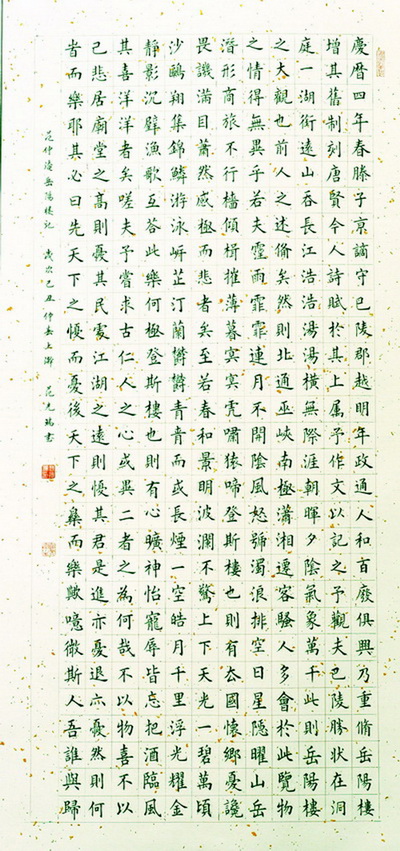 慶曆四年春滕子京謫守巴陵郡越明年政通人和百廢俱興乃重脩岳陽樓
增其舊制刻唐賢今人詩賦於其上属予作文以記之予觀夫巴陵勝狀在洞
庭一湖銜遠山吞長江浩浩湯湯橫無際涯朝暉夕陰氣象萬千此則岳陽樓
之大觀也前人之述備矣然則北通巫峽南極瀟湘遷客騷人多會於此覽物
之情得無異乎若夫霪雨霏霏連月不開陰風怒號濁浪排空日星隱曜山岳
潛形商旅不行檣傾楫摧薄暮冥冥虎嘯猿啼登斯樓也則有去國懷鄉憂讒
畏譏滿目蕭然感極而悲者矣至若春和景明波瀾不驚上下天光一碧萬頃
沙鷗翔集錦鱗游泳岸芷汀蘭鬱鬱青青而或長煙一空皓月千里浮光耀金
靜影沉璧漁歌互答此樂何極登斯樓也則有心曠神怡寵辱皆忘把酒臨風
其喜洋洋者矣嗟夫予嘗求古仁人之心或異二者之為何哉不以物喜不以
己悲居廟堂之高則憂其民處江湖之遠則憂其君是進亦憂退亦憂然則何
旹而樂耶其必曰先天下之憂而憂後天下之樂而樂歟噫微斯人吾誰與歸
范仲淹岳陽樓記 歲次己丑仲 上澣 范光瑞書